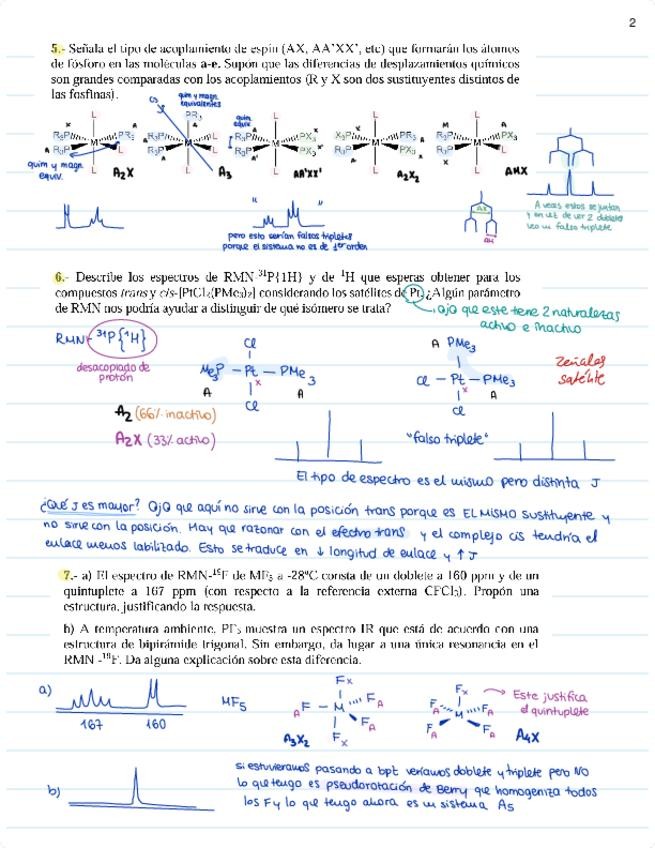 2
5.- Señala el tipo de acoplamiento de espín (AX, AA'XX', etc) que formarán los átomos
de fósforo en las moléculas a-e. Supón que las diferencias de desplazamientos químicos
son grandes comparadas con los acoplamientos (R y X son dos sustituyentes distintos de
las fosfinas).
quim y magn.
equivalentes
quim y magn.
equiv.
A₂X
A₃
quim
equiv.
AA'XX'
A₂X₂
AMX
A veces estos se juntan
y en vez de ver 2 dobletes
veo un falso triplete
pero esto serían falsos tripletes
porque el sistema no es de 1er orden
AX
AM
6.- Describe los espectros de RMN-³¹P{1H} y de ¹H que esperas obtener para los
compuestos trans y cis-[PtCl₂(PMe₃)₂] considerando los satélites de Pt. ¿Algún parámetro
de RMN nos podría ayudar a distinguir de qué isómero se trata?
ojo que este tiene 2 naturalezas
activo e inactivo
RMN-³¹P{¹H}
desacoplado de
protón
A₂ (66% inactivo)
A₂X (33% activo)
Cl
Me₃P - Pt - PMe₃
A x A
Cl
A PMe₃
Cl - Pt - PMe₃
x A
Cl
Zeñales
satélite
"falso triplete"
El tipo de espectro es el mismo pero distinta J
¿Qué J es mayor? Ojo que aquí no sirve con la posición trans porque es EL MISMO sustituyente y
no sirve con la posición. Hay que razonar con el efecto trans y el complejo cis tendría el
enlace menos labilizado. Esto se traduce en ↓ longitud de enlace y ↑ J
7.- a) El espectro de RMN-¹⁹F de MF₅ a -28°C consta de un doblete a 160 ppm y de un
quintuplete a 167 ppm (con respecto a la referencia externa CFCl₃). Propón una
estructura, justificando la respuesta.
b) A temperatura ambiente, PF₅ muestra un espectro IR que está de acuerdo con una
estructura de bipirámide trigonal. Sin embargo, da lugar a una única resonancia en el
RMN -¹⁹F. Da alguna explicación sobre esta diferencia.
a)
167 160
MF₅
A₃X₂
Este justifica
el quintuplete
A₄X
b)
si estuvieramos pasando a bpt veríamos doblete y triplete pero NO
lo que tengo es pseudorotación de Berry que homogeniza todos
los F y lo que tengo ahora es un sistema A₅